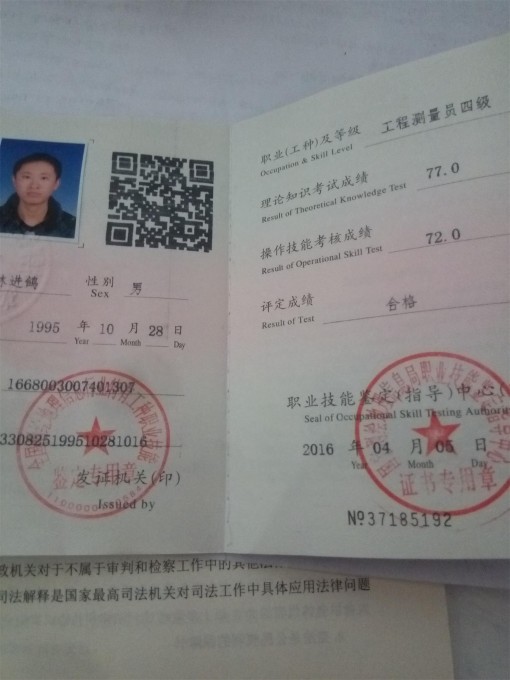 进鳞
性别 男
Sex
1995 年 10 月 28 日
Year Month Day
1668003007401307
330825199510281016
发证机关(印)
Issued by
鉴定专用章
职业(工种)及等级 工程测量员四级
Occupation & Skill Level
理论知识考试成绩 77.0
Result of Theoretical Knowledge Test
操作技能考核成绩 72.0
Result of Operational Skill Test
评定成绩 合格
Result of Test
职业技能鉴定(指导)中心(
Seal of Occupational Skill Testing Authority
2016 年 04 月 05 日
Year Month Day
证书专用章
№37185192
政机关对于不属于审判和检察工作中的其他法
司法解释是国家最高司法机关对司法工作中具体应用法律问题